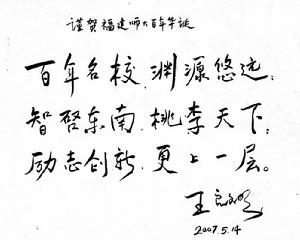 谨贺福建师大百年华诞
百年名校,渊源悠远;
智启东南,桃李天下;
励志创新,更上一层。
王
2007.5.14